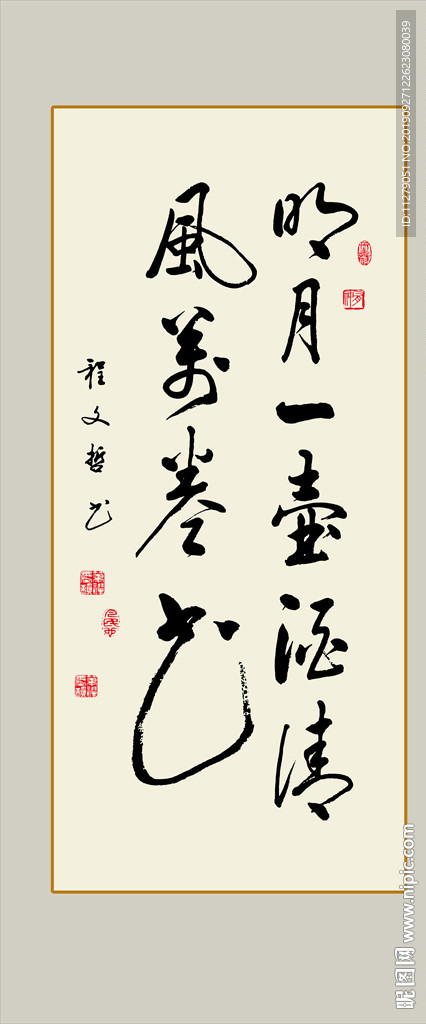 明月一壺酒清
風萬卷书
程文哲书
ID:11279051 NO:20190927122623080039
昵图网 www.nipic.com